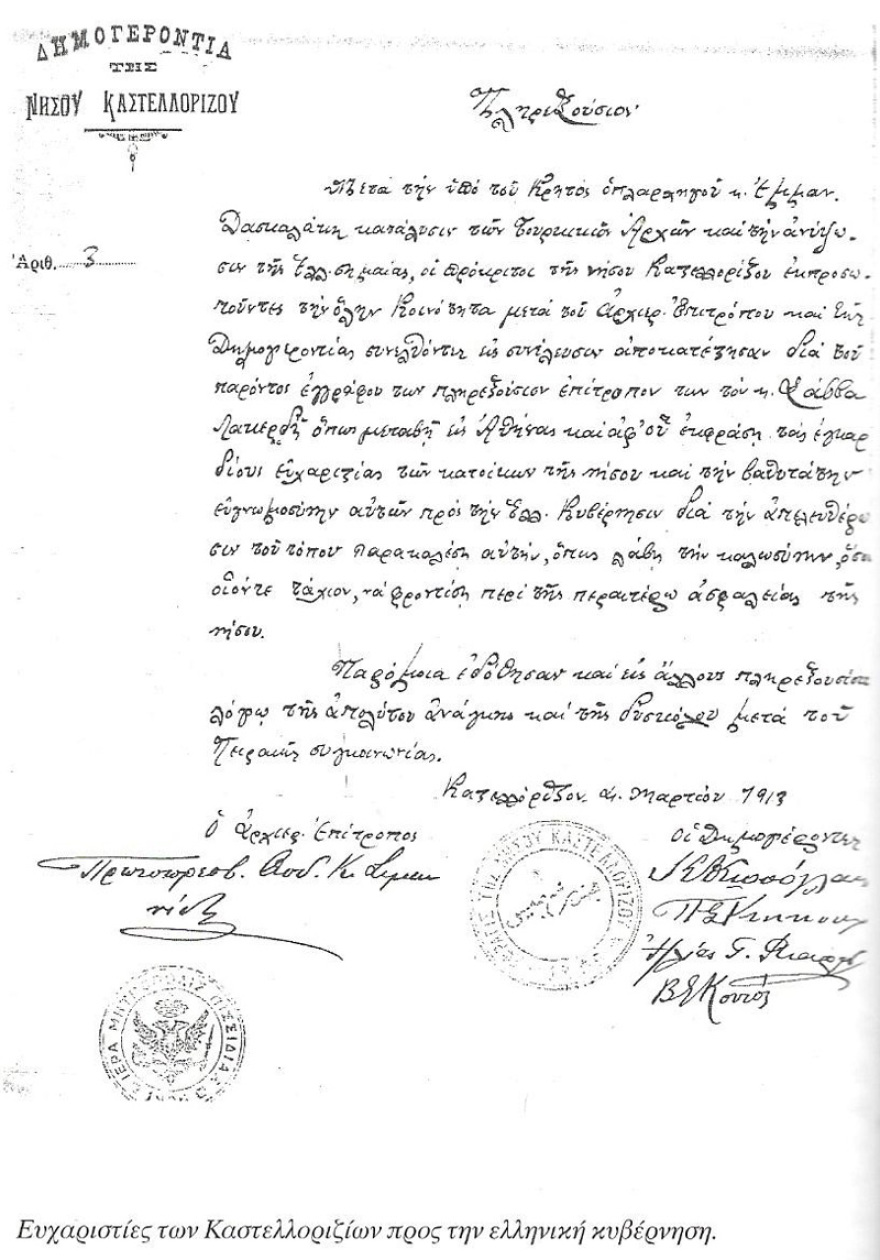 ΔΗΜΟΓΕΡΟΝΤΙΑ
ΤΗΣ
ΝΗΣΟΥ ΚΑΣΤΕΛΛΟΡΙΖΟΥ
Πληρεξούσιον
Ἀριθ. 3
Μετὰ τὴν ὑπὸ τοῦ Κρητὸς ὁπλαρχηγοῦ κ. Ἐμμαν.
Δασκαλάκη κατάλυσιν τῶν Τουρκικῶν Ἀρχῶν καὶ τὴν ἀνύψω-
σιν τῆς Ἑλλ. σημαίας, οἱ πρόκριτοι τῆς νήσου Καστελλορίζου ἐκπροσω-
ποῦντες τὴν ὅλην Κοινότητα μετὰ τοῦ Ἀρχιερ. Ἐπιτρόπου καὶ τῆς
Δημογεροντίας συνελθόντες εἰς συνέλευσιν ἀποκατέστησαν διὰ τοῦ
παρόντος ἐγγράφου των πληρεξούσιον ἐπίτροπόν των τὸν κ. Σάββα
Λακερδῆ ὅπως μεταβῇ εἰς Ἀθήνας καὶ ἀφ' οὗ ἐκφράσῃ τὰς ἐγκαρ
δίους εὐχαριστίας τῶν κατοίκων τῆς νήσου καὶ τὴν βαθυτάτην
εὐγνωμοσύνην αὐτῶν πρὸς τὴν Ἑλλ. Κυβέρνησιν διὰ τὴν ἀπελευθέρω
σιν τοῦ τόπου παρακαλέσῃ αὐτήν, ὅπως λάβῃ τὴν καλωσύνην, ὅσον
οἷόντε τάχιον, νὰ φροντίσῃ περὶ τῆς περαιτέρω ἀσφαλείας τῆς
νήσου.
Παρόμοια ἐδόθησαν καὶ εἰς ἄλλους πληρεξουσίους
λόγῳ τῆς ἀπολύτου ἀνάγκης καὶ τῆς δυσκόλου μετὰ τοῦ
Πειραιῶς συγκοινωνίας.
Καστελλόριζον 4 Μαρτίου 1913
Ὁ ἀρχιερ. Ἐπίτροπος
Οἱ Δημογέροντες
Πρωτοπρεσβ.
Ἠλίας Γ.
ΝΗΣΟΥ ΚΑΣΤΕΛΛΟΡΙΖΟΥ
ΙΕΡΑ ΜΗΤΡΟΠΟΛΙΣ ΠΙΣΣΙΔΙΑΣ
Ευχαριστίες των Καστελλοριζίων προς την ελληνική κυβέρνηση.